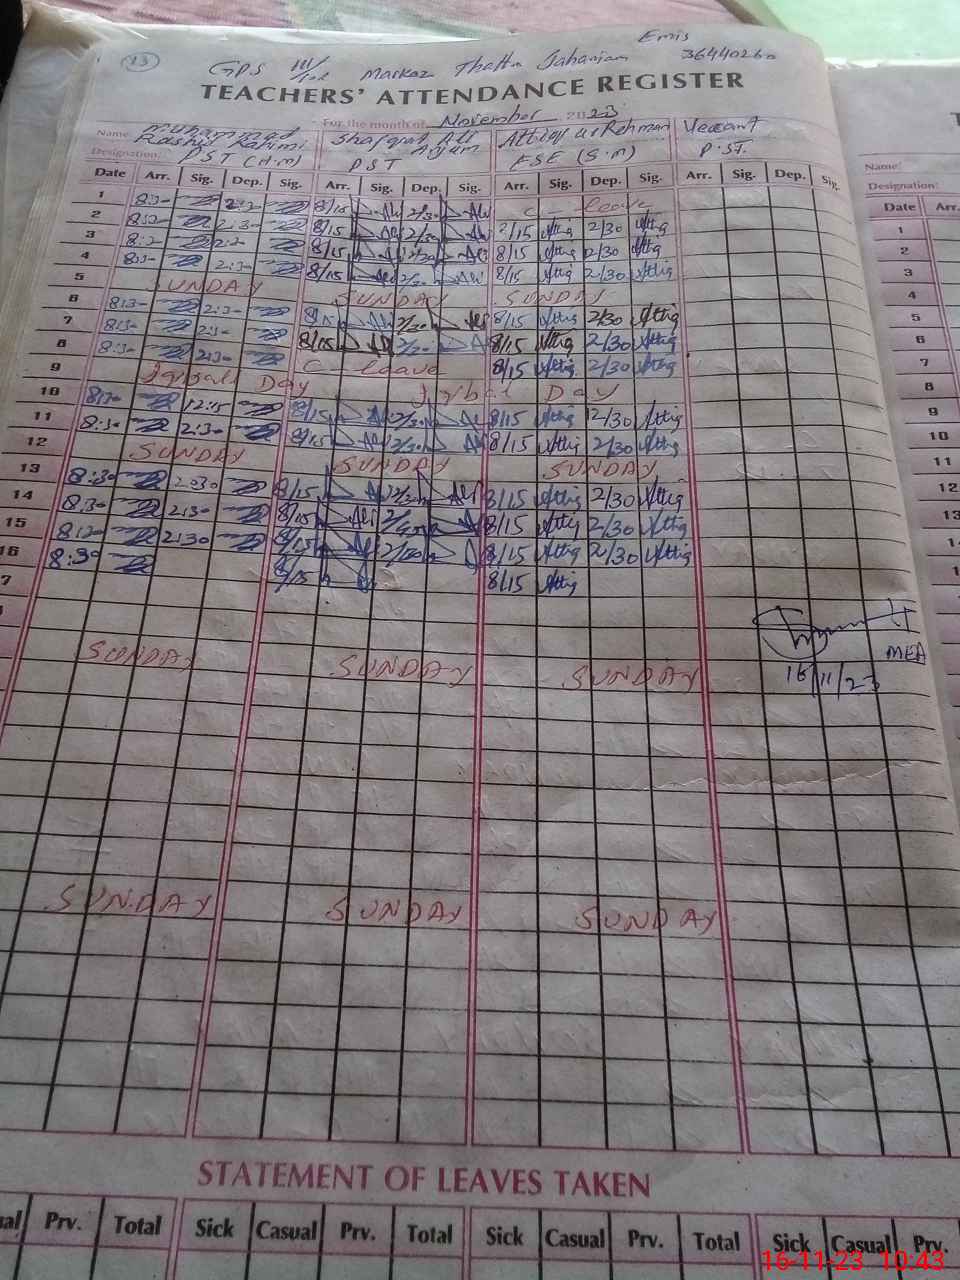 13
GPS 111/10R Markaz Thatta Jahanian
Emis
36440260
TEACHERS' ATTENDANCE REGISTER
For the month of November 2023
Name: Muhammad Rashid Rahimi
Shafqat Ali Anjum
Attiq ur Rehman
Vecant
Designation: PST (H.M)
PST
ESE (S.M)
P.ST.
Date Arr. Sig. Dep. Sig. Arr. Sig. Dep. Sig. Arr. Sig. Dep. Sig. Arr. Sig. Dep. Sig.
1 8:3- 8/15 2/30 C - leave
2 8:3- 2:3- 8/15 2/30 8/15 Attiq 2/30 Attiq
3 8:3- 8/15 8/15 Attiq 2/30 Attiq
4 8:3- 2:3- 8/15 2/30 8/15 Attiq 2/30 Attiq
5 SUNDAY SUNDAY SUNDAY
6 8:3- 2:3- 8/15 2/30 8/15 Attiq 2/30 Attiq
7 8:3- 2:3- 8/15 2/30 8/15 Attiq 2/30 Attiq
8 8:3- 2:3- C - leave 8/15 Attiq 2/30 Attiq
9 Iqbal Day Iqbal Day
10 8:3- 12:15 8/15 8/15 Attiq 12/30 Attiq
11 8:3- 2:3- 8/15 2/30 8/15 Attiq 2/30 Attiq
12 SUNDAY SUNDAY SUNDAY
13 8:30 2:30 8/15 2/30 8/15 Attiq 2/30 Attiq
14 8:3- 2:3- 8/15 2/45 8/15 Attiq 2/30 Attiq
15 8:30 2:30 8/15 8/15 Attiq 2/30 Attiq
16 8:30 8/15 8/15 Attiq
MEA
16/11/23
SUNDAY SUNDAY SUNDAY
SUNDAY SUNDAY SUNDAY
STATEMENT OF LEAVES TAKEN
Prv. Total Sick Casual Prv. Total Sick Casual Prv. Total Sick Casual Prv.
Name:
Designation:
Date Arr.
1
2
3
4
5
6
7
8
9
10
11
12
13
16-11-23 10:43